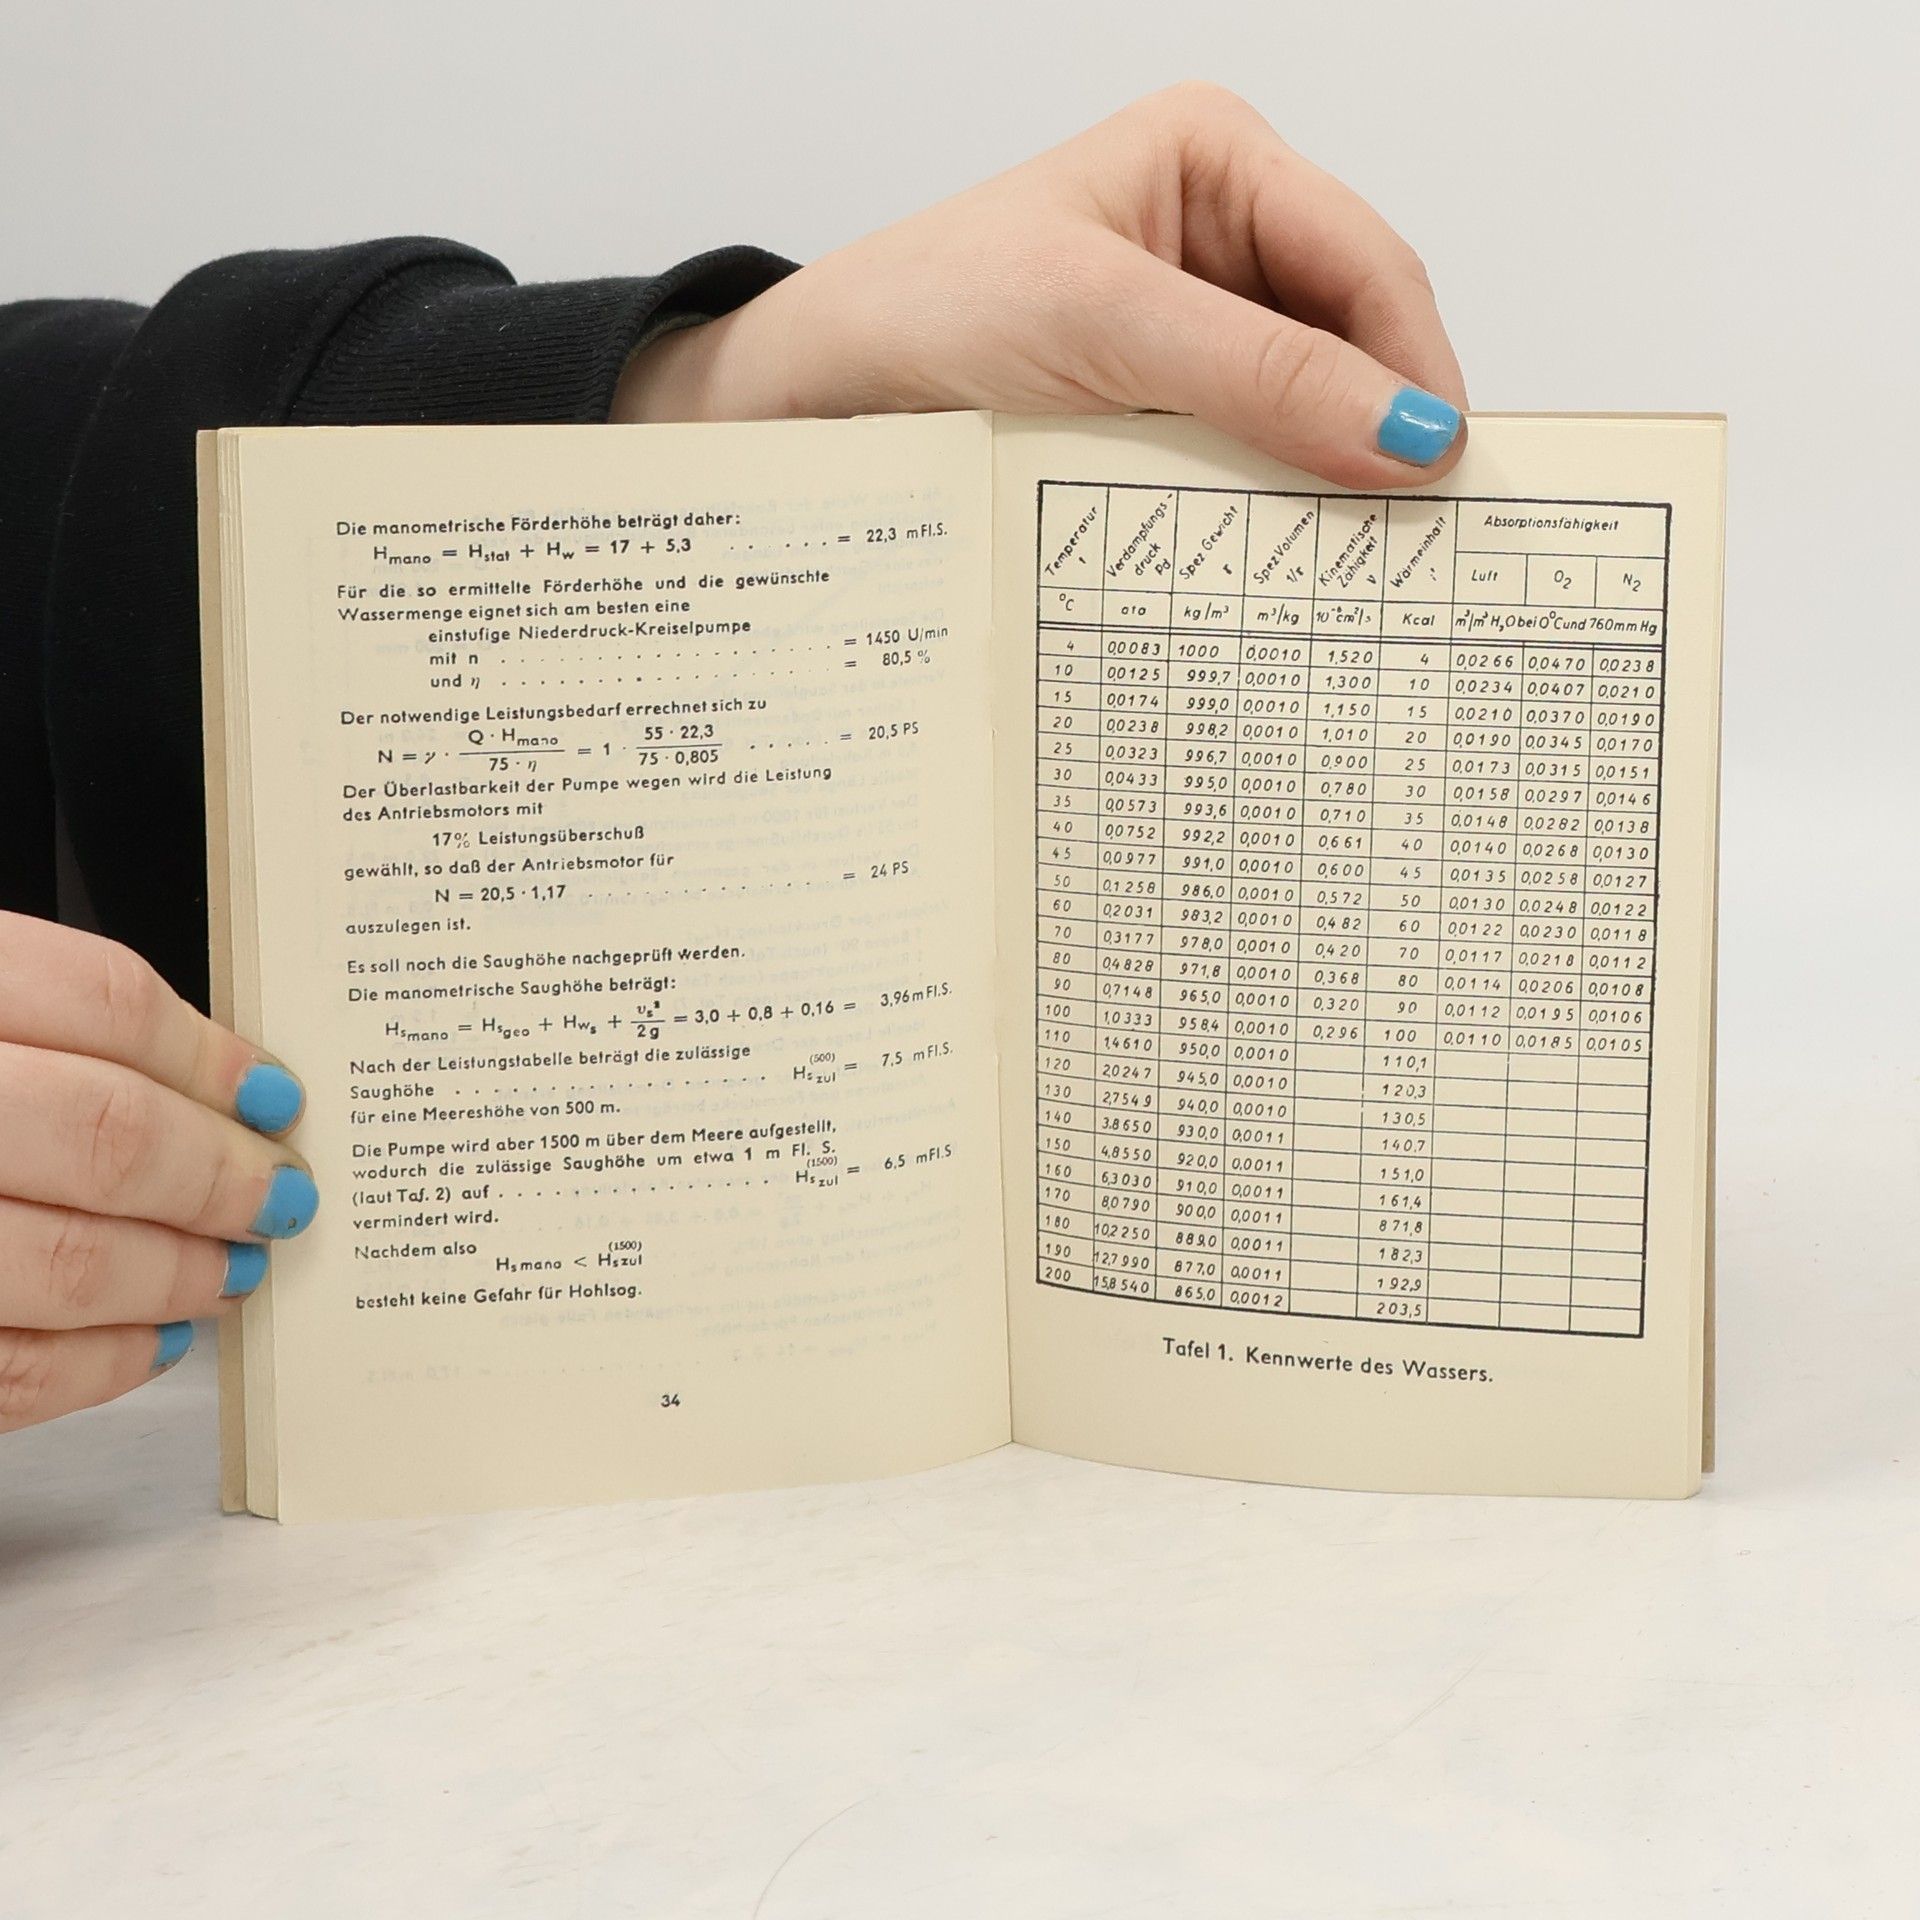 Die manometrische Förderhöhe beträgt daher:
Hmano = Hstat + Hw = 17 + 5,3 . . . . . . = 22,3 mFl.S.
Für die so ermittelte Förderhöhe und die gewünschte
Wassermenge eignet sich am besten eine
einstufige Niederdruck-Kreiselpumpe
mit n . . . . . . . . . . . . . . . = 1450 U/min
und η . . . . . . . . . . . . . . . = 80,5 %
Der notwendige Leistungsbedarf errechnet sich zu
N = γ · Q · Hmano / 75 · η = 1 · 55 · 22,3 / 75 · 0,805 . . . . . = 20,5 PS
Der Überlastbarkeit der Pumpe wegen wird die Leistung
des Antriebsmotors mit
17% Leistungsüberschuß
gewählt, so daß der Antriebsmotor für
N = 20,5 · 1,17 . . . . . . . . . . . . = 24 PS
auszulegen ist.
Es soll noch die Saughöhe nachgeprüft werden.
Die manometrische Saughöhe beträgt:
Hsmano = Hsgeo + Hws + υs² / 2g = 3,0 + 0,8 + 0,16 = 3,96 mFl.S.
Nach der Leistungstabelle beträgt die zulässige
Saughöhe . . . . . . . . . . . . . . . . Hszul (500) = 7,5 mFl.S.
für eine Meereshöhe von 500 m.
Die Pumpe wird aber 1500 m über dem Meere aufgestellt,
wodurch die zulässige Saughöhe um etwa 1 m Fl. S.
(laut Taf. 2) auf . . . . . . . . . . . . . . Hszul (1500) = 6,5 mFl.S
vermindert wird.
Nachdem also
Hsmano < Hszul (1500)
besteht keine Gefahr für Hohlsog.
34
Temperatur t Verdampfungs-druck Pd Spez Gewicht γ Spez Volumen 1/γ Kinematische Zähigkeit ν Wärmeinhalt i' Absorptionsfähigkeit
Luft O2 N2
°C ata kg/m³ m³/kg 10⁻⁶cm²/s Kcal m³/m³ H2O bei 0°C und 760mm Hg
4 0,0083 1000 0,0010 1,520 4 0,0266 0,0470 0,0238
10 0,0125 999,7 0,0010 1,300 10 0,0234 0,0407 0,0210
15 0,0174 999,0 0,0010 1,150 15 0,0210 0,0370 0,0190
20 0,0238 998,2 0,0010 1,010 20 0,0190 0,0345 0,0170
25 0,0323 996,7 0,0010 0,900 25 0,0173 0,0315 0,0151
30 0,0433 995,0 0,0010 0,780 30 0,0158 0,0297 0,0146
35 0,0573 993,6 0,0010 0,710 35 0,0148 0,0282 0,0138
40 0,0752 992,2 0,0010 0,661 40 0,0140 0,0268 0,0130
45 0,0977 991,0 0,0010 0,600 45 0,0135 0,0258 0,0127
50 0,1258 986,0 0,0010 0,572 50 0,0130 0,0248 0,0122
60 0,2031 983,2 0,0010 0,482 60 0,0122 0,0230 0,0118
70 0,3177 978,0 0,0010 0,420 70 0,0117 0,0218 0,0112
80 0,4828 971,8 0,0010 0,368 80 0,0114 0,0206 0,0108
90 0,7148 965,0 0,0010 0,320 90 0,0112 0,0195 0,0106
100 1,0333 958,4 0,0010 0,296 100 0,0110 0,0185 0,0105
110 1,4610 950,0 0,0010 110,1
120 2,0247 945,0 0,0010 120,3
130 2,7549 940,0 0,0010 130,5
140 3,8650 930,0 0,0011 140,7
150 4,8550 920,0 0,0011 151,0
160 6,3030 910,0 0,0011 161,4
170 8,0790 900,0 0,0011 871,8
180 10,2250 889,0 0,0011 182,3
190 12,7990 877,0 0,0011 192,9
200 15,8540 865,0 0,0012 203,5
Tafel 1. Kennwerte des Wassers.